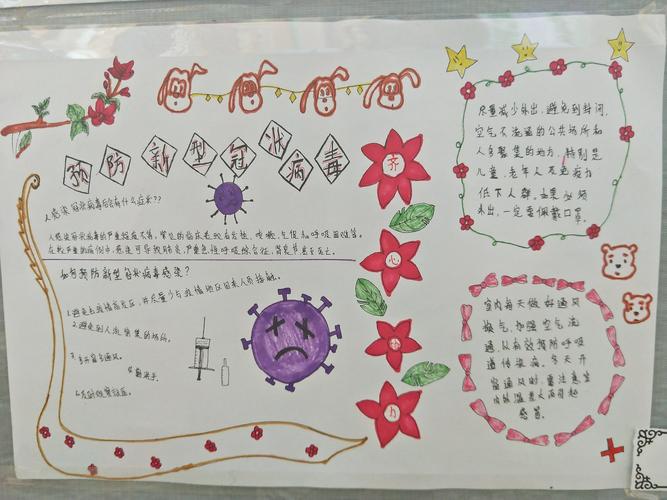 预防新型冠状病毒
人感染冠状病毒后会有什么症状??
人感染冠状病毒的严重程度不等,常见的临床表现有发热、咳嗽、气促和呼吸困难等。
在较严重的病例中,感染可导致肺炎、严重急性呼吸综合征、肾衰竭甚至死亡。
如何预防新型冠状病毒感染?
1.避免去疫情高发区,并尽量少与疫情地区回来人员接触。
2.避免到人流密集的场所。
3.多开窗多通风。
勤洗手
齐
心
协
力
尽量减少外出,避免到封闭、
空气不流通的公共场所和
人多聚集的地方,特别是
儿童、老年人及免疫力
低下人群。如果必须
外出,一定要佩戴口罩。
室内每天做好通风
换气,加强空气流
通,从有效预防呼吸
道传染病。冬天开
窗通风时,需注意室
内外温差大而引起
感冒。